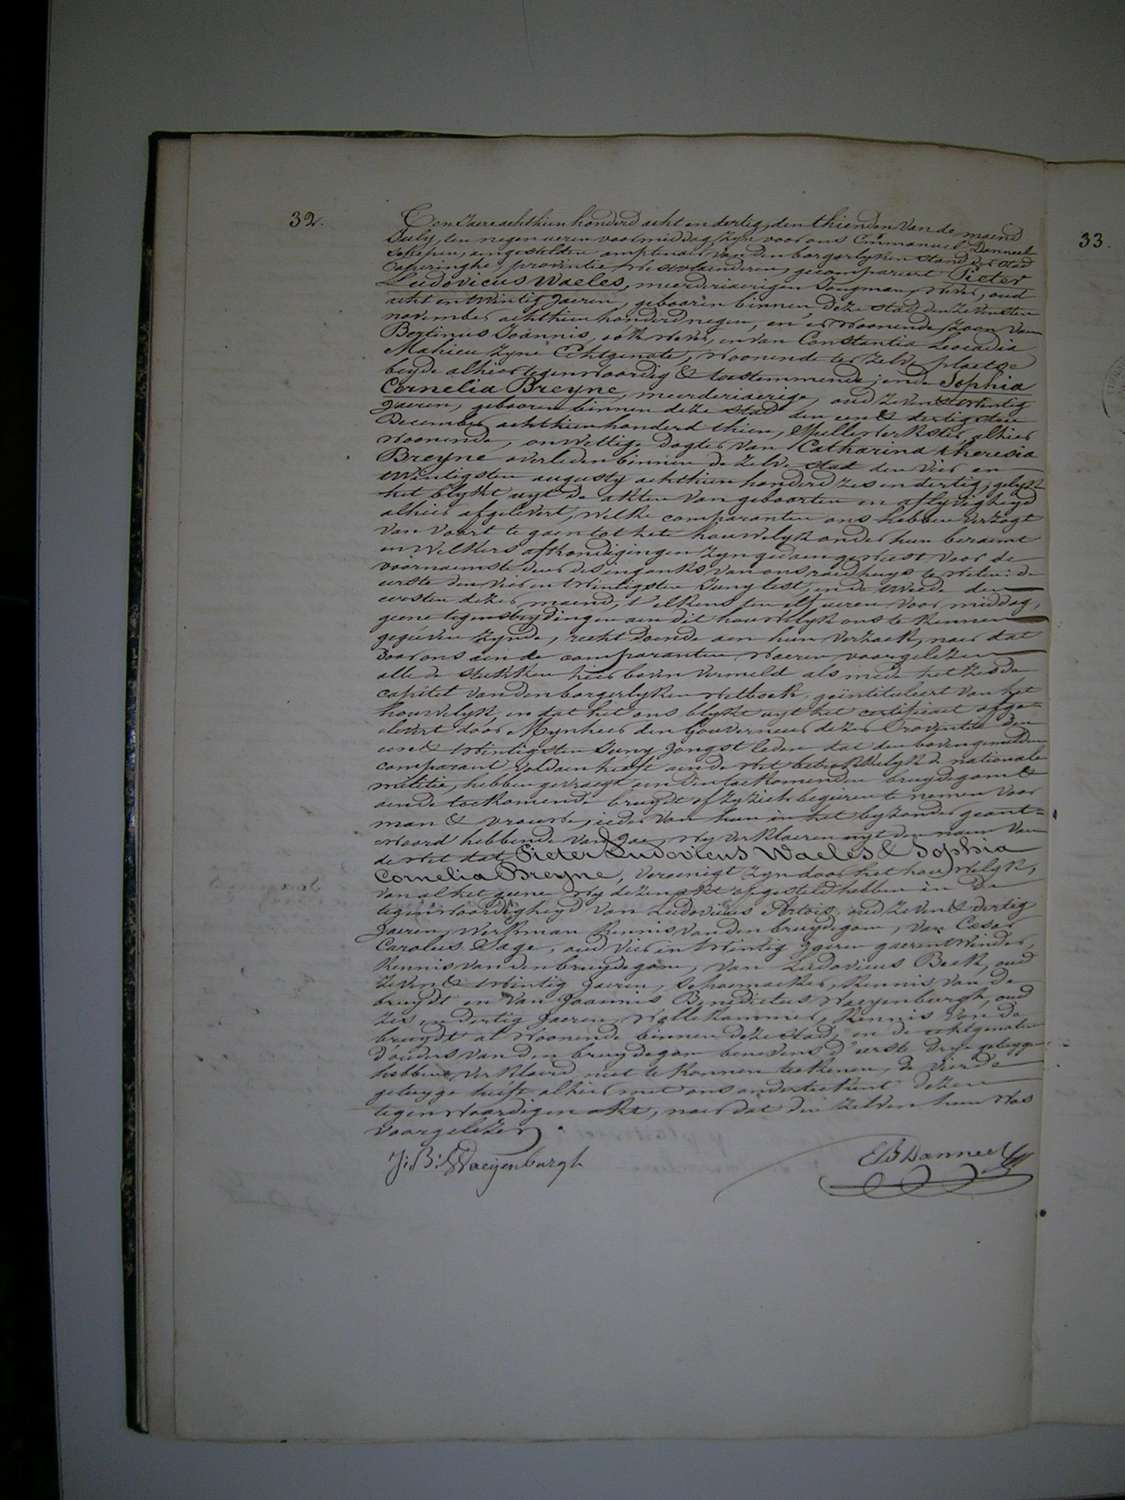 32.
Ten Jaere achthien honderd acht en dertig, den thienden van de maend
July, ten negen ueren voormiddag, zyn voor ons Emmanuel Danneel
Schepen, aengestelden amptenaer van den borgerlyken stand der stad
Poperinghe, provintie Westvlaenderen, gecompareert Pieter
Ludovicus Waeles, meerderjaerigen Jongman, wever, oud
acht en twintig Jaeren, gebooren binnen deze stad den zevensten
november achthien honderd negen, en er woonende, zoon van
Bertinus Joannis, ook wever, en van Constantia Leocadia
Mahieu zyne Echtgenote, woonende ter zelve plaetse
beyde alhier tegenwoordig & toestemmende; ende Sophia
Cornelia Breyne, meerderjaerige, oud zeven & twintig
Jaeren, gebooren binnen deze stad den een & dertigsten
December achthien honderd thien, Spellewerkster, alhier
woonende, onwettige dogter van Catharina theresia
Breyne overleden binnen de zelve stad den vier en
twintigsten augusty achthien honderd zes en dertig, gelyk
het blykt uyt de akten van geboorten en aflyvigheyd
alhier afgelevert, welke comparanten ons hebben verzogt
van voort te gaen tot het houwelyk onder hun beraemt
en welkers afkondigingen zyn gedaen geweest voor de
voornaemste deur des ingangs van ons raedhuys te weten: de
eerste den vier en twintigsten Juny lest, en de tweede den
eersten dezer maend, telkens ten elf ueren voormiddag,
geene tegenstrydingen aen dit houwelyk ons te kennen
gegeven zynde, recht doende aen hun verzoek, naer dat
door ons aen de comparanten waeren voorgelezen
alle de stukken hier boven vermeld als mede het zesde
capittel van den borgerlyken wetboek, geintituleert van het
houwelyk, en dat het ons blykt uyt het certificaet afge-
levert door Mynheer den Gouverneur dezer Provintie den
een & twintigsten Juny Jongst leden dat den bovengemelden
comparant voldaen heeft aen de wet betrekkelyk de nationale
militie, hebben gevraegt aen den toekomenden bruydegom &
aen de toekomende bruydt of zy zich begeeren te nemen voor
man & vrouwe, ieder van hun in het byzonder geant-
woord hebbende van Jae, wy verklaeren uyt den naem van
de wet dat Pieter Ludovicus Waeles & Sophia
Cornelia Breyne, vereenigt zyn door het houwelyk,
van al het geene wy dezen akt opgesteld hebben in de
tegenwoordigheyd van Ludovicus Artois, oud zeven & dertig
Jaeren, werkman kennis van den bruydegom, van Cesar
Carolus Sage, oud vier en twintig Jaeren gaerentwinder,
kennis van den bruydegom, van Ludovicus Beck, oud
zeven & twintig Jaeren, schoenmaeker, kennis van de
bruydt en van Joannis Benedictus Waeyenburgh, oud
zes en dertig Jaeren, Wollekammer, kennis van de
bruydt al woonende binnen deze stad; en de echtgenoten
d'ouders van den bruydegom benevens d'eerste drye getuygen
hebben verklaerd niet te konnen teekenen, de vierde
getuyge heeft alhier met ons onderteekent dezen
tegenwoordigen akt, naer dat die zelven hun was
voorgelezen.
J: B: Waeyenburgh
E B Danneel
33.